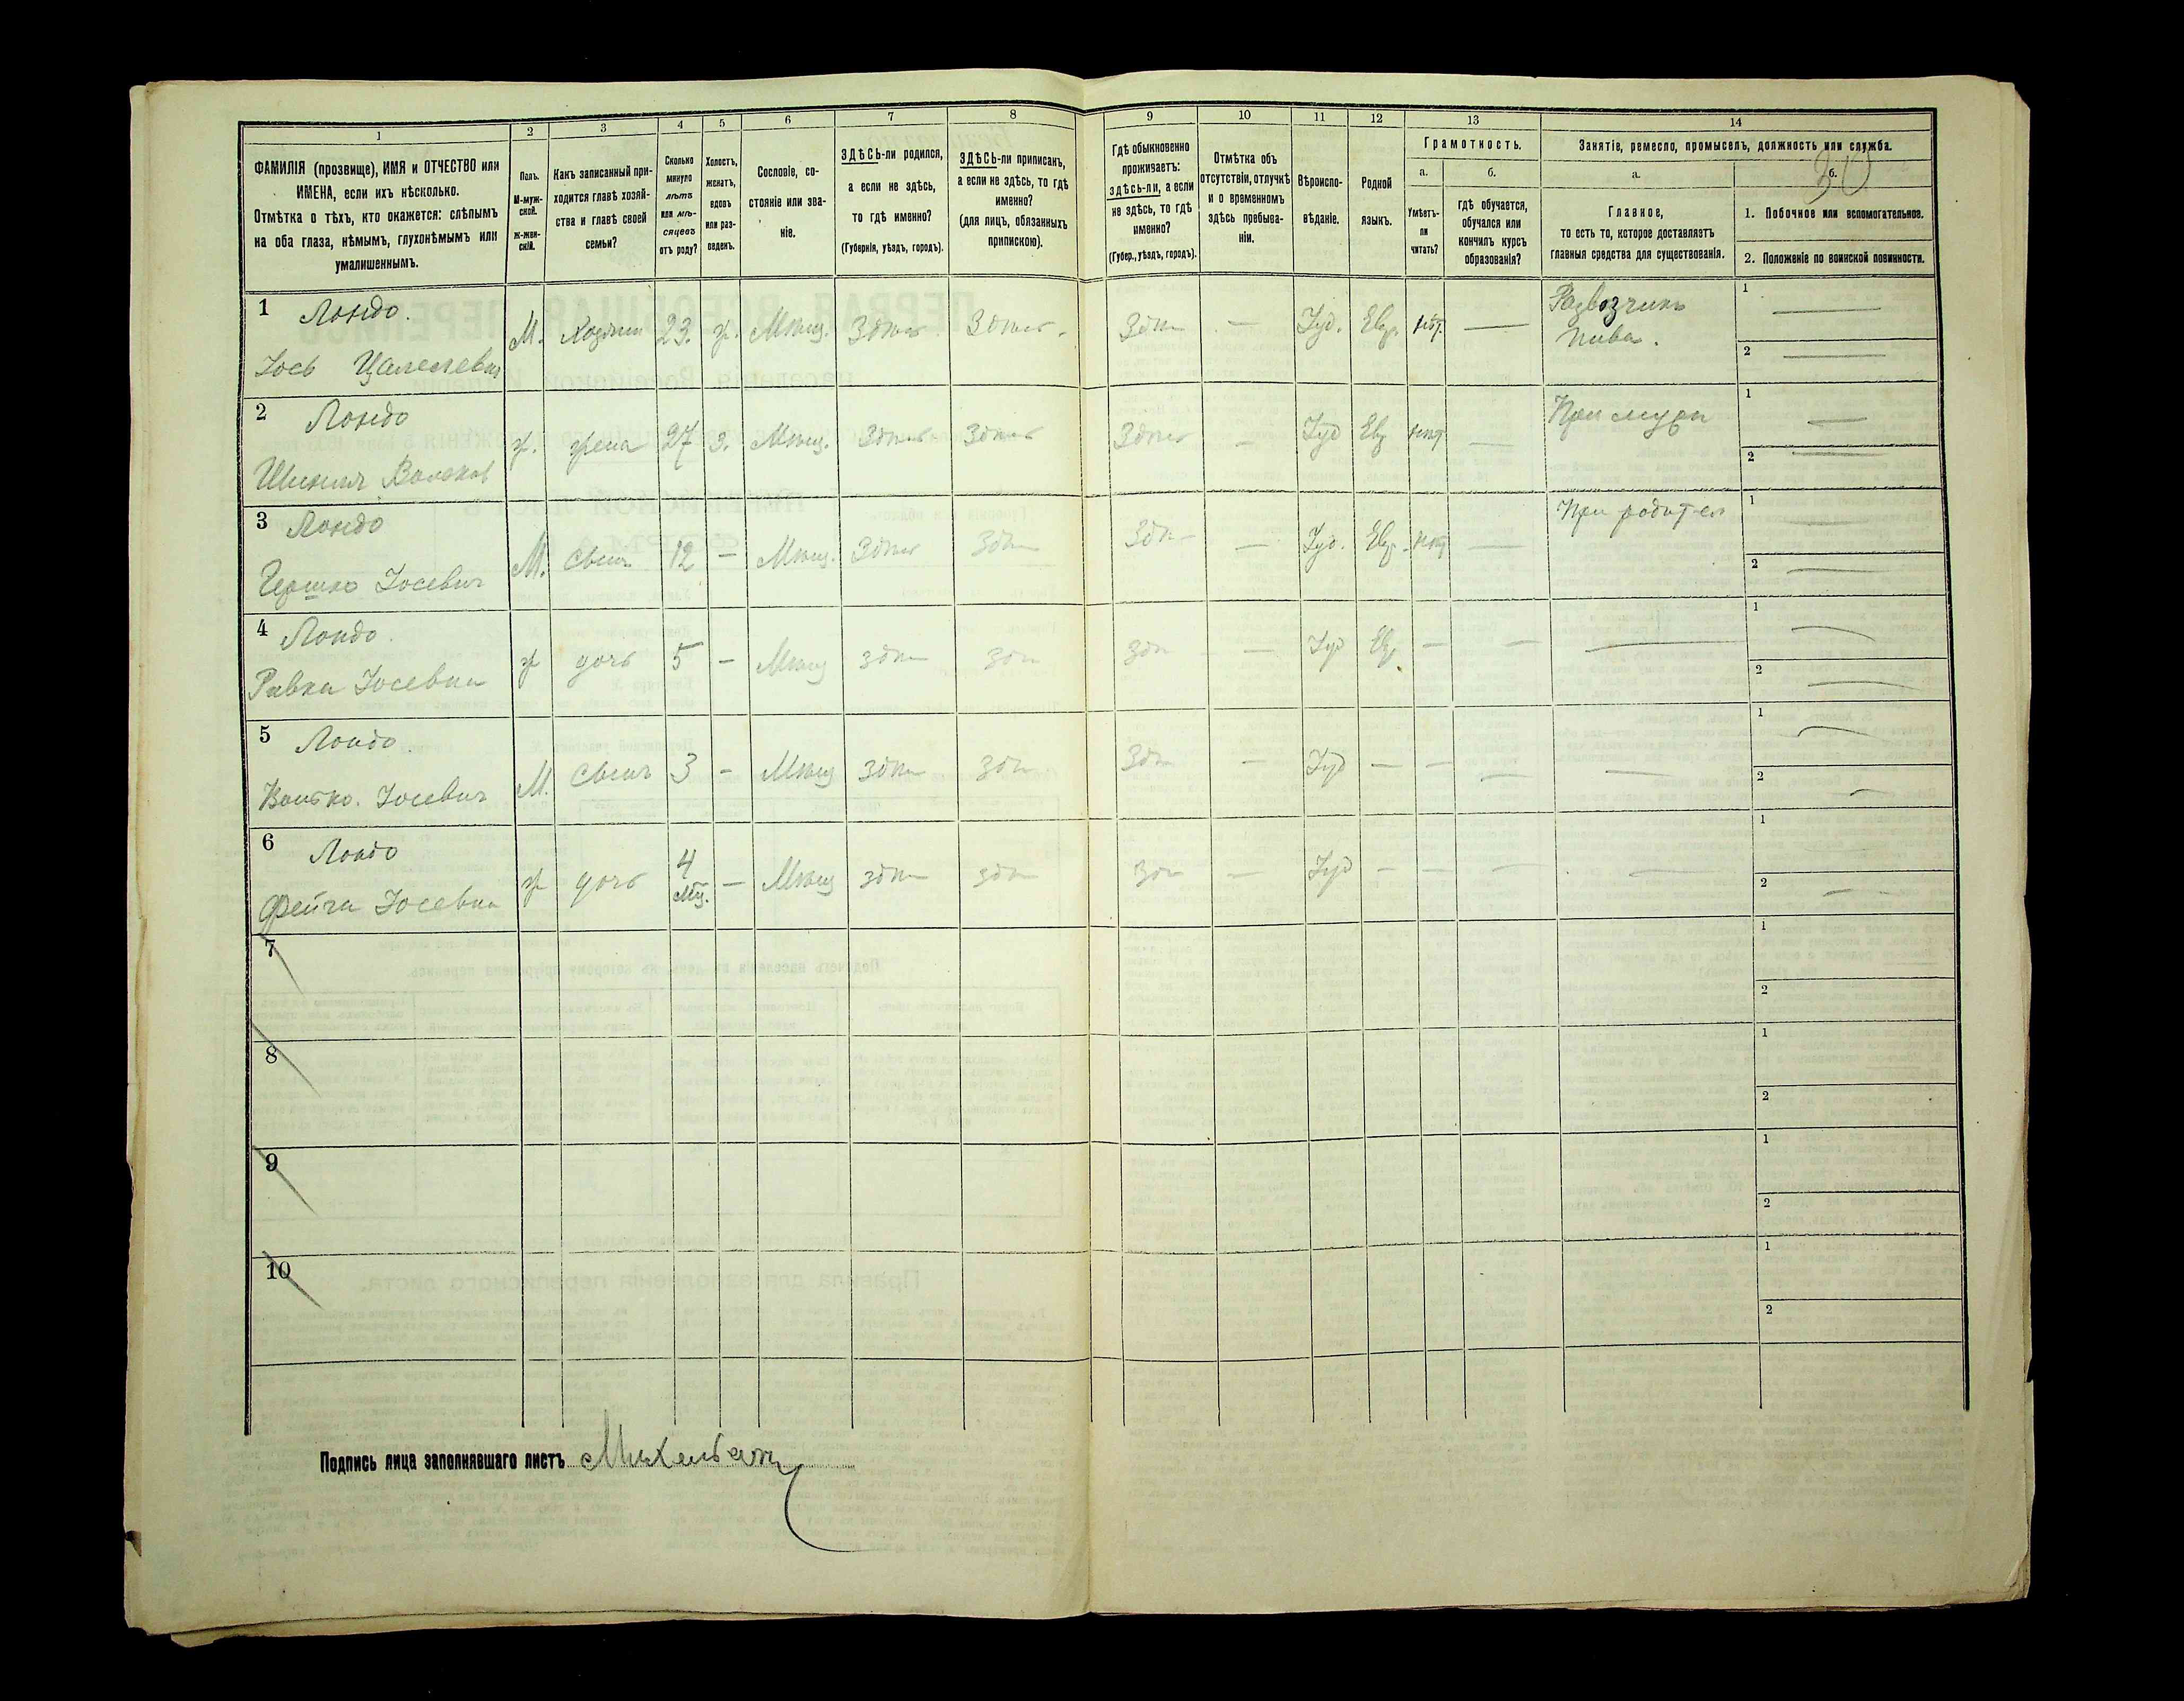 1 2 3 4 5 6 7 8 9 10 11 12 13 14
ФАМИЛІЯ (прозвище), ИМЯ и ОТЧЕСТВО или
ИМЕНА, если ихъ нѣсколько.
Отмѣтка о тѣхъ, кто окажется: слѣпымъ
на оба глаза, нѣмымъ, глухонѣмымъ или
умалишеннымъ.
Полъ.
М-муж-
ской.
Ж-жен-
скій.
Какъ записанный при-
ходится главѣ хозяй-
ства и главѣ своей
семьи?
Сколько
минуло
лѣтъ
или мѣ-
сяцевъ
отъ роду?
Холостъ,
женатъ,
вдовъ
или раз-
веденъ.
Сословіе, со-
стояніе или зва-
ніе.
ЗДѢСЬ-ли родился,
а если не здѣсь,
то гдѣ именно?
(Губернія, уѣздъ, городъ).
ЗДѢСЬ-ли приписанъ,
а если не здѣсь, то гдѣ
именно?
(для лицъ, обязанныхъ
припискою).
Гдѣ обыкновенно
проживаетъ:
здѣсь-ли, а если
не здѣсь, то гдѣ
именно?
(Губер., уѣздъ, городъ).
Отмѣтка объ
отсутствіи, отлучкѣ
и о временномъ
здѣсь пребыва-
ніи.
Вѣроиспо-
вѣданіе.
Родной
языкъ.
Грамотность.
а.
Умѣетъ-
ли
читать?
б.
гдѣ обучается,
обучался или
кончилъ курсъ
образованія?
Занятіе, ремесло, промыселъ, должность или служба.
30
а.
Главное,
то есть то, которое доставляетъ
главныя средства для существованія.
б.
1. Побочное или вспомогательное.
2. Положеніе по воинской повинности.
1 Лондо.
Іось
М. 23. ж. Мѣщ. Здѣсь Здѣсь Здѣ — Іуд. Евр. нѣт. —
Развозчикъ
пива.
1 —
2 —
2 Лондо
ж. жена 27 з. Мѣщ. Здѣсь Здѣсь Здѣсь — Іуд Евр нѣт —
При мужи
1 —
2 —
3 Лондо
Гершко Іосевич
М. Сынъ 12 — Мѣщ. Здѣсь Здѣ Здѣ — Іуд. Евр. нѣт —
При родител
1 —
2 —
4 Лондо.
Ривка Іосевна
ж дочь 5 — Мѣщ здѣ зд зд — Іуд Евр — — —
1 —
2 —
5 Лондо.
Волько. Іосевич
М. Сынъ 3 — Мѣщ здѣ зд Здѣ — Іуд — — — —
1 —
2 —
6 Лондо
Фейга Іосевна
ж дочь 4
мѣ. — Мѣщ здѣ здѣ Зд — Іуд — — — —
1
2 —
7
1
2
8
1
2
9
1
2
10
1
2
Подпись лица заполнявшаго листъ